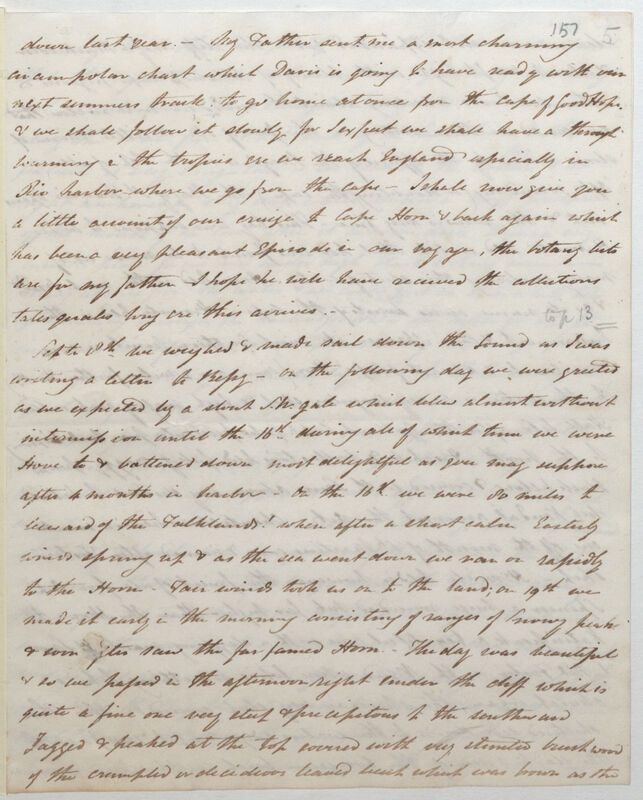 157 5
down last year. — My Father sent me a most charming
circumpolar chart which Davis is going to have ready with our
next summers track, to go home at once from the Cape of Good Hope.
& we shall follow it slowly for I expect we shall have a through
warming in the tropics ere we reach England especially in
Rio harbor where we go from the Cape — I shall now give you
a little account of our cruize to Cape Horn & back again which
has been a very pleasant Episode in our voyage, the botany bits
are for my father I hope he will have received the collections
tales quales long ere this arrives. —
to p 13
Sept. 8th we weighed & made sail down the Sound as I was
writing a letter to Bessy — on the following day we were greeted
as we expected by a stout S.W. gale which blew almost without
intermission until the 16th during all of which time we were
Hove to & battened down most delightful as you may suppose
after 4 months in harbor — On the 16th we were 80 miles to
leeward of the Falklands! when after a short calm Easterly
winds sprung up & as the sea went down we ran on rapidly
to the Horn — Fair winds took us on to the land, on 19th we
made it early in the morning consisting of ranges of Snowy peaks
& soon after saw the far famed Horn. — The day was beautiful
& so we passed in the afternoon right under the cliff which is
quite a fine one very steep & precipitous to the southward
Jagged & peaked at the top covered with very stunted brushwood
of the crumpled or decideous leaved beech which was brown as the